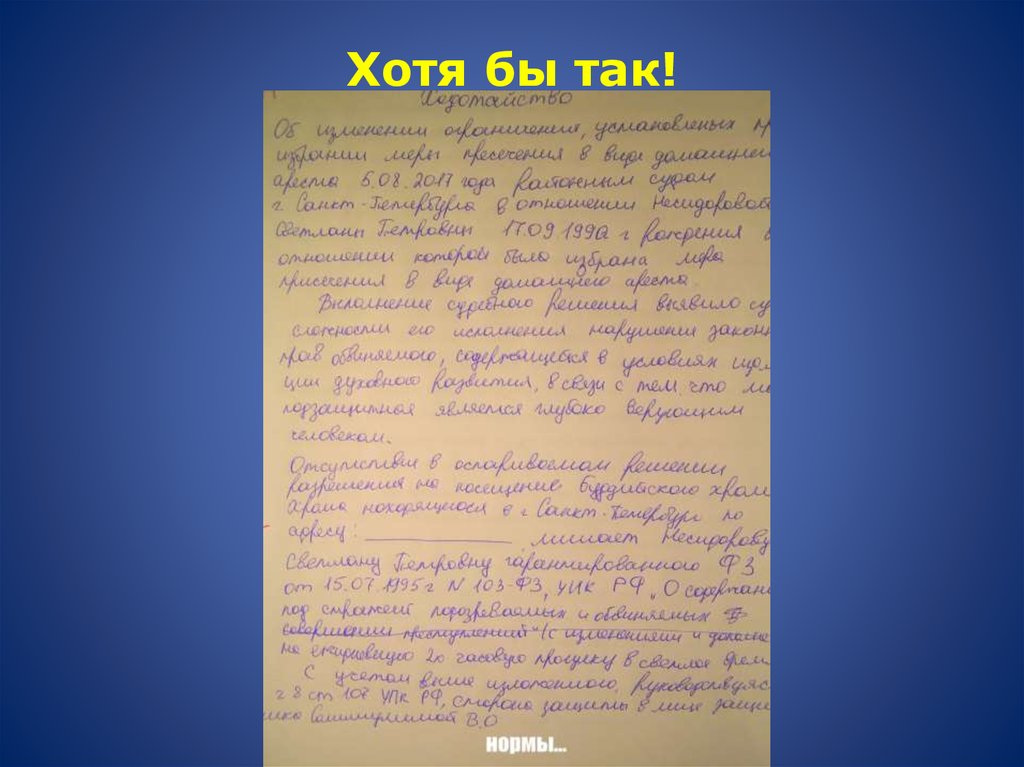 Хотя бы так!
Ходотайство
Об изменении ограничения, установленых пр
избрании меры пресечения в виде домашней
ареста 5.08.2017 года районным судом
г. Санкт-Петербурга в отношении Несидоровой
Светланы Петровны 17.09.1990 г рождения в
отношении которой была избрана мера
присечения в виде домашнего ареста.
Выполнение судебного решения выявило су
сложности его исполнения нарушения законн
прав обвиняемого, содержащейся в условиях изол
ции духовного развития, в связи с тем, что мо
подзащитная является глубоко верующим
человеком.
Отсутствие в оспариваемом решении
разрешения на посещение Буддийского храм
храма находящиося в г Санкт-Петербург по
адресу: ____________ лишает Несидорову
Светлану Петровну гарантированного ФЗ
от 15.07.1995 г N 103-ФЗ, УПК РФ „О содержани
под стражей подозреваемых и обвиняемых в
совершении преступлений" (с изменениями и дополне
на ежедневную 2х часовую прогулку в светлое врем
С учетом выше изложенного, руководствуяс
ч 8 ст 107 УПК РФ, сторона защиты в лице защи
В.О
нормы...